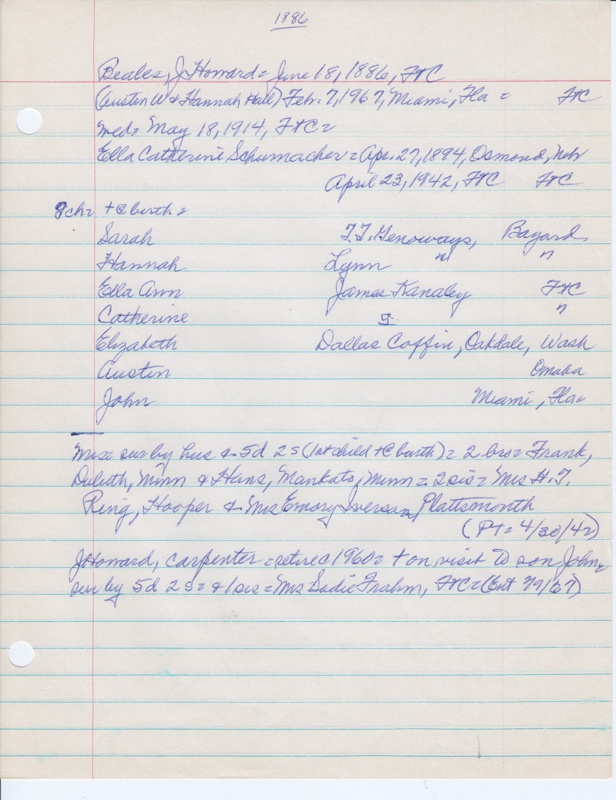 1886
Beales, J Howard = June 18, 1886, FtC
(Austin W & Hannah Hall) Feb. 7, 1967, Miami, Fla = FtC
wed = May 18, 1914, FtC =
Ella Catherine Schumacher = Apr. 27, 1894, Osmond, Nebr
April 23, 1942, FtC FtC
8ch = + @ birth =
Sarah F.F. Genoways, Bayard
Hannah Lynn " "
Ella Ann James Kanaley FtC
Catherine S "
Elizabeth Dallas Coffin, Oakdale, Wash
Austin Omaha
John Miami, Fla =
Mrs = sur by hus & 5d 2s (1st child + @ birth) = 2 bro = Frank,
Duluth, Minn & Hans, Mankato, Minn = 2 sis = Mrs H.F.
Ring, Hooper & Mrs Emory Plattsmouth
(PT = 4/30/42)
J Howard, carpenter = retired 1960 = + on visit to son John =
sur by 5d 2s = & 1 sis = Mrs Sadie Frahm, FtC = (Ent /9/67)